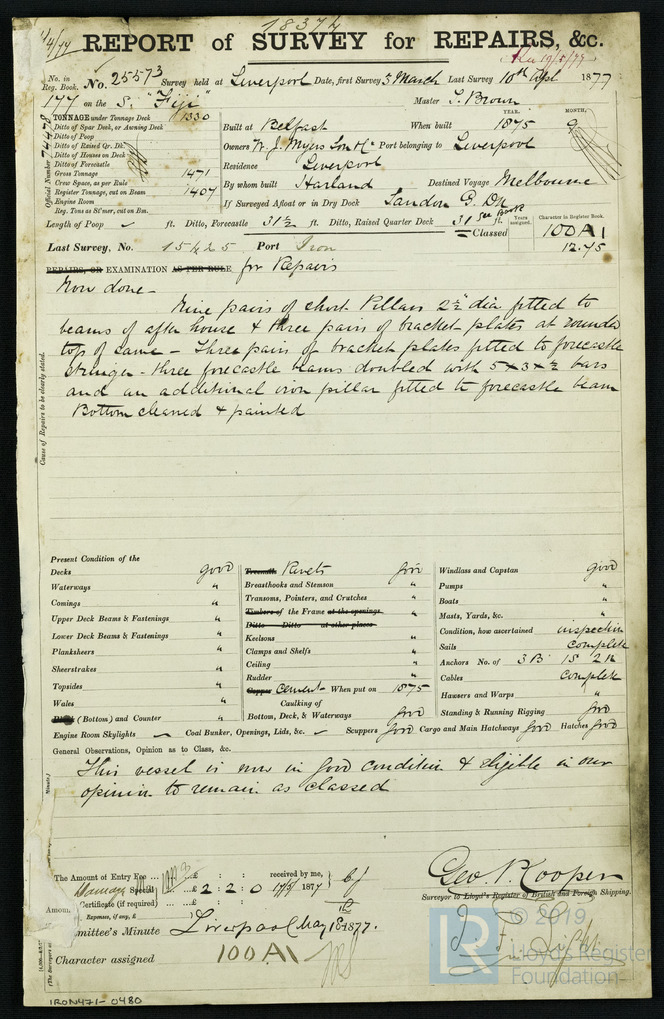 18374
4/4/77 REPORT of SURVEY for REPAIRS, &c.
Rec 19/5/77
No. in Reg. Book. No. 25573 Survey held at Liverpool Date, first Survey 3 March Last Survey 10th Apl 1877
177 on the S. "Fiji" Master T. Brown
TONNAGE under Tonnage Deck 1330
Ditto of Spar Deck, or Awning Deck
Ditto of Poop
Ditto of Raised Qr. Dk.
Ditto of Houses on Deck
Ditto of Forecastle
Gross Tonnage 1471
Crew Space, as per Rule
Register Tonnage, cut on Beam 1407
Engine Room
Reg. Tons as St'mer, cut on Bm.
Official Number 74478
YEAR. MONTH.
Built at Belfast When built 1875 9
Owners W. J. Myers Son & Co Port belonging to Liverpool
Residence Liverpool
By whom built Harland Destined Voyage Melbourne
If Surveyed Afloat or in Dry Dock Sandon G. Dk
See Book
Length of Poop ft. Ditto, Forecastle 31½ ft. Ditto, Raised Quarter Deck 31 ft. Classed
Years assigned.
Character in Register Book.
100 A1
12.75
Last Survey, No. 15425 Port Iron
REPAIRS, OR EXAMINATION AS PER RULE for Repairs
Cause of Repairs to be clearly stated.
Now done -
Nine pairs of short Pillars 2½ dia fitted to
beams of after house & three pairs of bracket plates at rounded
top of same - Three pairs of bracket plates fitted to forecastle
stringer - three forecastle beams doubled with 5 x 3 x ½ bars
and an additional iron pillar fitted to forecastle beam
Bottom cleaned & painted
Present Condition of the
Decks good
Waterways "
Comings "
Upper Deck Beams & Fastenings "
Lower Deck Beams & Fastenings "
Planksheers "
Sheerstrakes "
Topsides "
Wales "
(Bottom) and Counter "
Treenails Rivets good
Breasthooks and Stemson "
Transoms, Pointers, and Crutches "
Timbers of the Frame at the openings "
Ditto Ditto at other places
Keelsons "
Clamps and Shelfs "
Ceiling "
Rudder "
Copper Cement When put on 1875
Caulking of
Bottom, Deck, & Waterways good
Windlass and Capstan good
Pumps "
Boats "
Masts, Yards, &c. "
Condition, how ascertained inspection
Sails complete
Anchors No. of 3 B 1 S 2 K
Cables complete
Hawsers and Warps "
Standing & Running Rigging good
Engine Room Skylights Coal Bunker, Openings, Lids, &c. Scuppers good Cargo and Main Hatchways good Hatches good
General Observations, Opinion as to Class, &c.
This vessel is now in good condition & eligible in our
opinion to remain as classed
The Amount of Entry Fee ... £ : : received by me,
Damage Special ... £ 2 : 2 : 0 17/5/1877
Certificate (if required) ... £ : :
Expenses, if any, £
Geo. P. Cooper
Surveyor to Lloyd's Register of British and Foreign Shipping.
mmittee's Minute Liverpool May 18 1877.
Character assigned 100 A1
© 2019
LR Lloyd's Register
Foundation
IRON471-0480